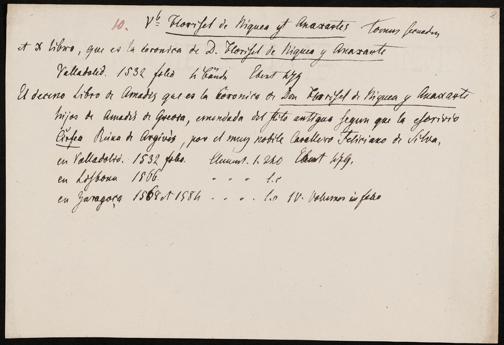 10. V.b Florisel de Niquea yt Anaxartes tomus secundus
et X libro, que es la coronica de D. Florisel de Niquea y Anaxarte
Valladolid. 1532 folio Ebert 479
El deceno Libro de Amadis que es la Coronica de Don Florisel de Niquea y Anaxarte
hijos de Amadis de Grecia, emendada del stilo antiguo segun que la escrivio
Reina de Argives, por el muy noble Cavallero Feliciano de Silva,
en Valladolid. 1532 folio. Clement. 1. 240 Ebert 479.
en Lisbona 1566. " " " l.c
en Zaragoça 1568 et 1584 " . . l.c IV. Volumes in folio
2